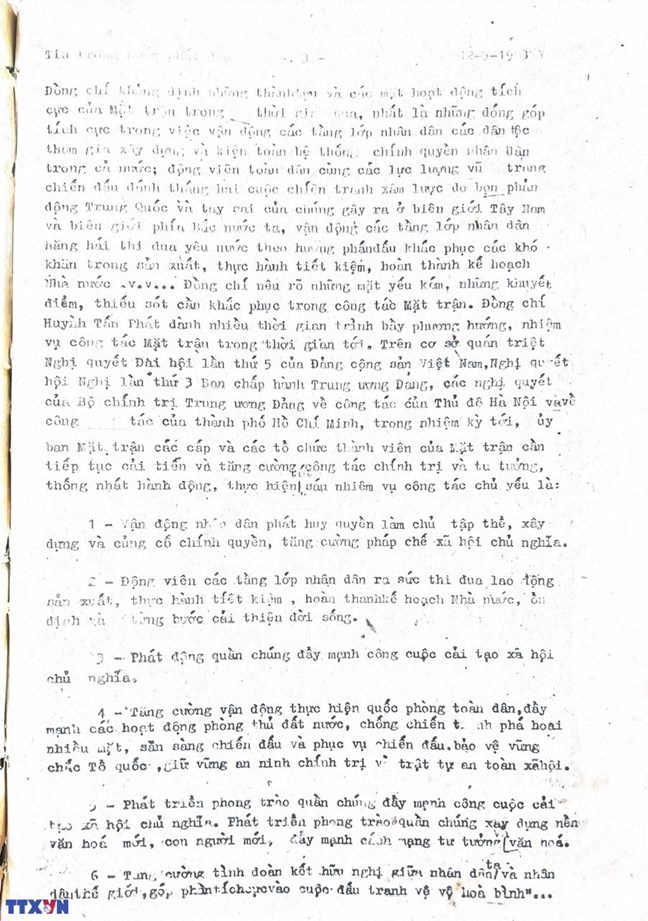 Tin trong - 3 - 12-5-1983
Đồng chí khẳng định những thànhtựu và các mặt hoạt động tích
cực của Mặt trận trong thời gian qua, nhất là những đóng góp
tích cực trong việc vận động các tầng lớp nhân dân các dân tộc
tham gia xây dựng và kiện toàn hệ thống chính quyền nhân dân
trong cả nước; động viên toàn dân cùng các lực lượng vũ trang
chiến đấu đánh thắng hai cuộc chiến tranh xâm lược do bọn phản
động Trung Quốc và tay sai của chúng gây ra ở biên giới Tây Nam
và biên giới phía Bắc nước ta, vận động các tầng lớp nhân dân
hăng hái thi đua yêu nước theo hướng phấnđấu khắc phục các khó
khăn trong sản xuất, thực hành tiết kiệm, hoàn thành kế hoạch
Nhà nước .v.v... Đồng chí nêu rõ những mặt yếu kém, những khuyết
điểm, thiếu sót cần khắc phục trong công tác Mặt trận. Đồng chí
Huỳnh Tấn Phát dành nhiều thời gian trình bày phương hướng, nhiệm
vụ công tác Mặt trận trong thời gian tới. Trên cơ sở quán triệt
Nghị quyết Đài hội lần thứ 5 của Đảng cộng sản Việt Nam,Nghị quyết
hội Nghị lần thứ 3 Ban chấp hành Trung ương Đảng, các nghị quyết
của Bộ chính trị Trung ương Đảng về công tác của Thủ đô Hà Nội vàvề
công tác của thành phố Hồ Chí Minh, trong nhiệm kỳ tới, ủy
ban Mặt trận các cấp và các tổ chức thành viên của Mặt trận cần
tiếp tục cải tiến và tăng cường công tác chính trị và tư tưởng,
thống nhất hành động, thực hiện sáu nhiệm vụ công tác chủ yếu là:
1 - Vận động nhân dân phát huy quyền làm chủ tập thể, xây
dựng và củng cố chính quyền, tăng cường pháp chế xã hội chủ nghĩa.
2 - Động viên các tầng lớp nhân dân ra sức thi đua lao động
sản xuất, thực hành tiết kiệm , hoàn thànhkế hoạch Nhà nước, ổn
định và từng bước cải thiện đời sống.
3 - Phát động quần chúng đẩy mạnh công cuộc cải tạo xã hội
chủ nghĩa.
4 - Tăng cường vận động thực hiện quốc phòng toàn dân,đẩy
mạnh các hoạt động phòng thủ đất nước, chống chiến tranh phá hoại
nhiều mặt, sẵn sàng chiến đấu và phục vụ chiến đấu.bảo vệ vững
chắc Tổ quốc ,giữ vững an ninh chính trị và trật tự an toàn xãhội.
5 - Phát triển phong trào quần chúng đẩy mạnh công cuộc cải
tạo xã hội chủ nghĩa. Phát triển phong trào quần chúng xây dựng nền
văn hoá mới, con người mới, đẩy mạnh cách mạng tư tưởng/văn hoá.
6 - Tăng cường tình đoàn kết hữu nghị giữa nhân dân ta và nhân
dânthế giới,góp phầntíchcựcvào cuộc đấu tranh vệ vệ hoà bình"...
TTXVN